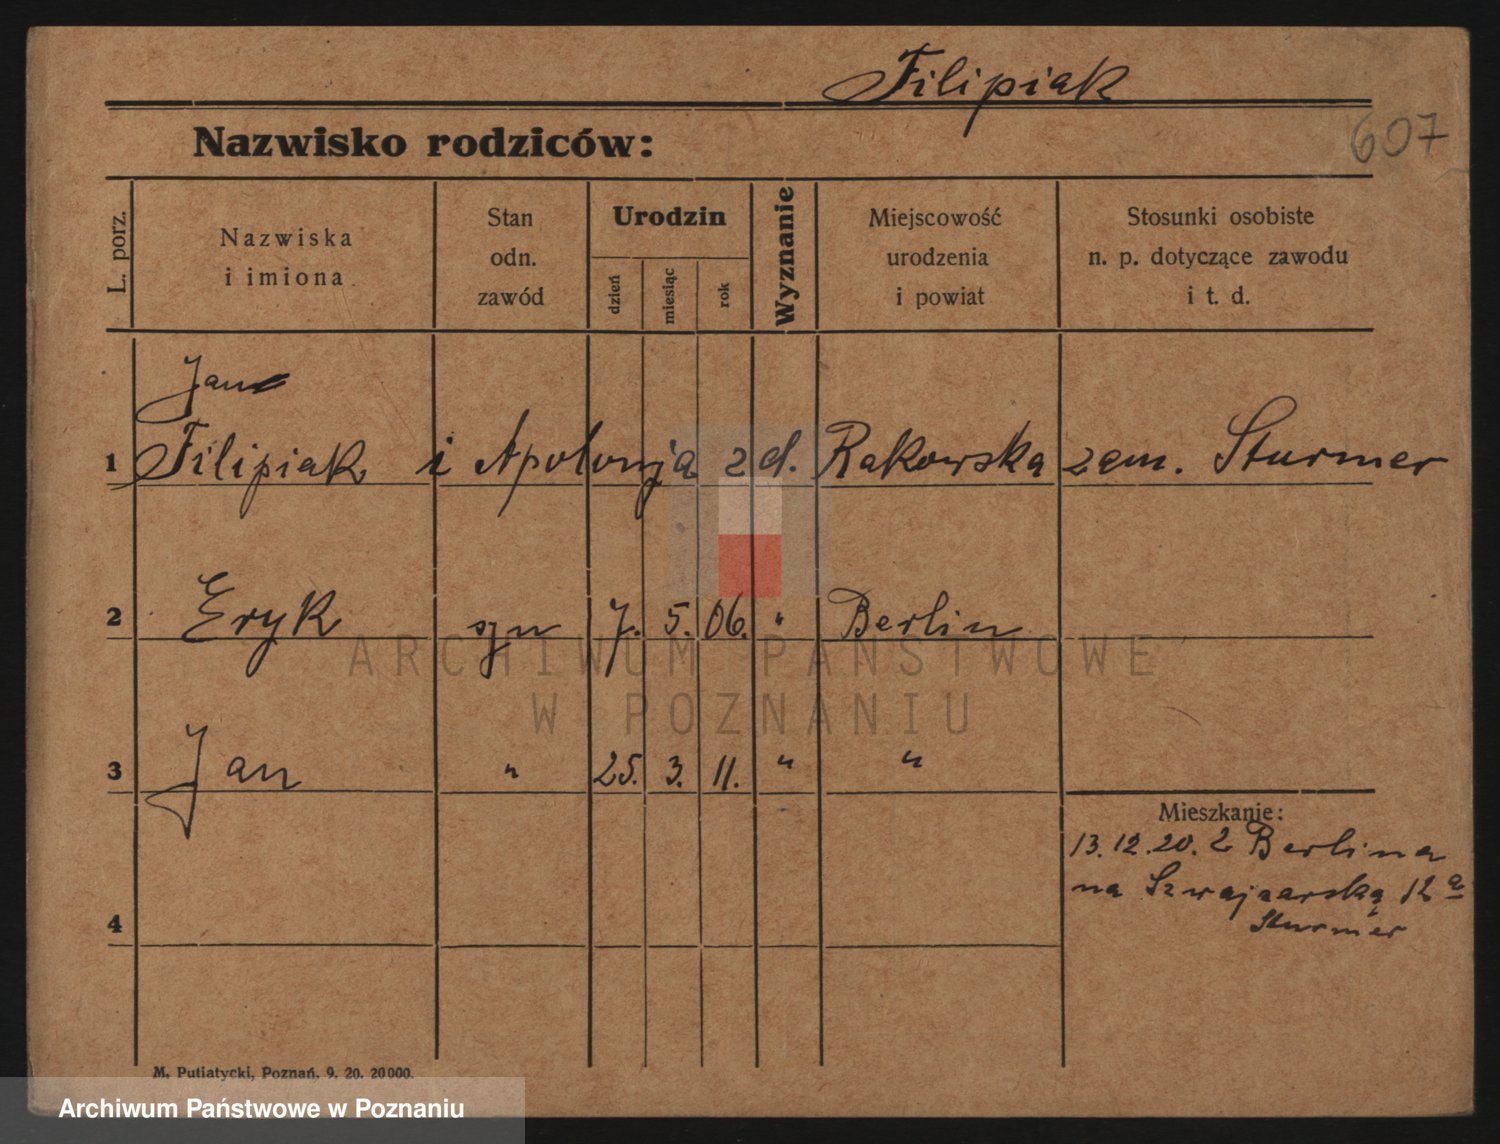 Filipiak
607
Nazwisko rodziców:
L. porz.
Nazwiska
i imiona
Stan
odn.
zawód
Urodzin
dzień
miesiąc
rok
Wyznanie
Miejscowość
urodzenia
i powiat
Stosunki osobiste
n. p. dotyczące zawodu
i t. d.
Jan
1 Filipiak i Apolonja z d. Rakowska zam. Sturmer
2 Eryk syn 7. 5. 06. " Berlin
ARCHIWUM PAŃSTWOWE
W POZNANIU
3 Jan " 25. 3. 11. " "
Mieszkanie:
13.12.20. z Berlina
na Szwajcarską 12 a
Sturmer
4
M. Putiatycki, Poznań. 9. 20. 20000.
Archiwum Państwowe w Poznaniu